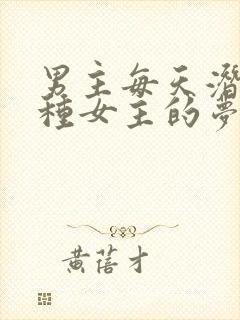 男主每天潛
種女主的夢
黃蓓才